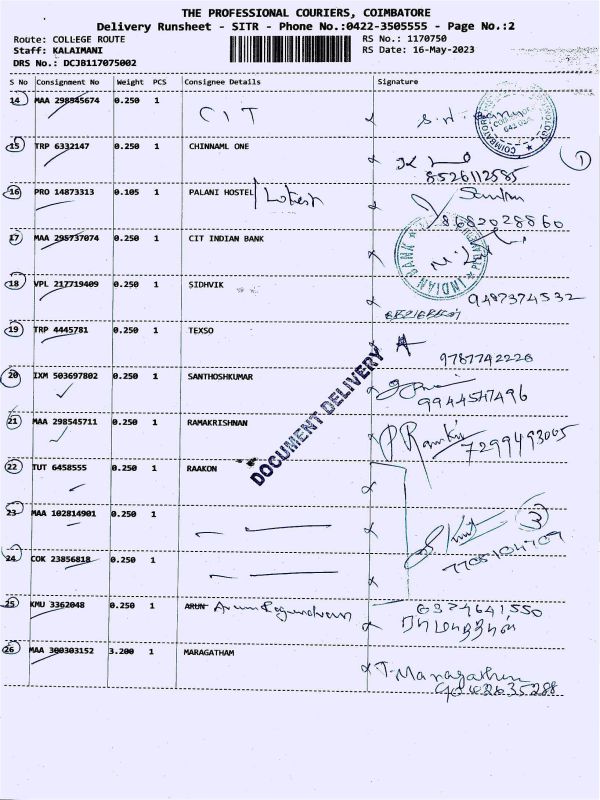 THE PROFESSIONAL COURIERS, COIMBATORE
Delivery Runsheet - SITR - Phone No.:0422-3505555 - Page No.:2
Route: COLLEGE ROUTE RS No.: 1170750
Staff: KALAIMANI RS Date: 16-May-2023
DRS No.: DCJB117075002
S No Consignment No Weight PCS Consignee Details Signature
14 MAA 298545674 0.250 1 CIT
15 TRP 6332147 0.250 1 CHINNAML ONE
8526112585
16 PRO 14873313 0.105 1 PALANI HOSTEL
8682028860
17 MAA 295737074 0.250 1 CIT INDIAN BANK
INDIAN BANK
18 VPL 217719409 0.250 1 SIDHVIK 9487374532
19 TRP 4445781 0.250 1 TEXSO
9787742226
20 IXM 503697802 0.250 1 SANTHOSHKUMAR
9944547496
DOCUMENT DELIVERY
21 MAA 298545711 0.250 1 RAMAKRISHNAN
7299493005
22 TUT 6458555 0.250 1 RAAKON
23 MAA 102814901 0.250 1
3
24 COK 23856818 0.250 1
25 KMU 3362048 0.250 1 ARUN 6374641550
26 MAA 300303152 3.200 1 MARAGATHAM
T. Maragatham